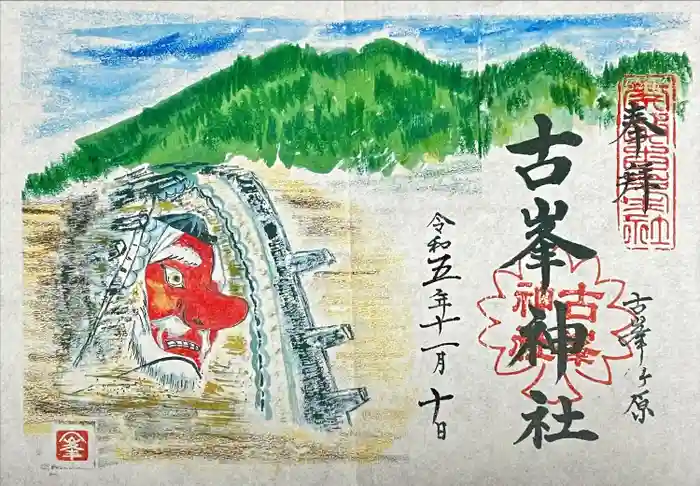 奉拝
古峯ヶ原
古峯神社
古峯
神社
令和五年十一月十日
峯